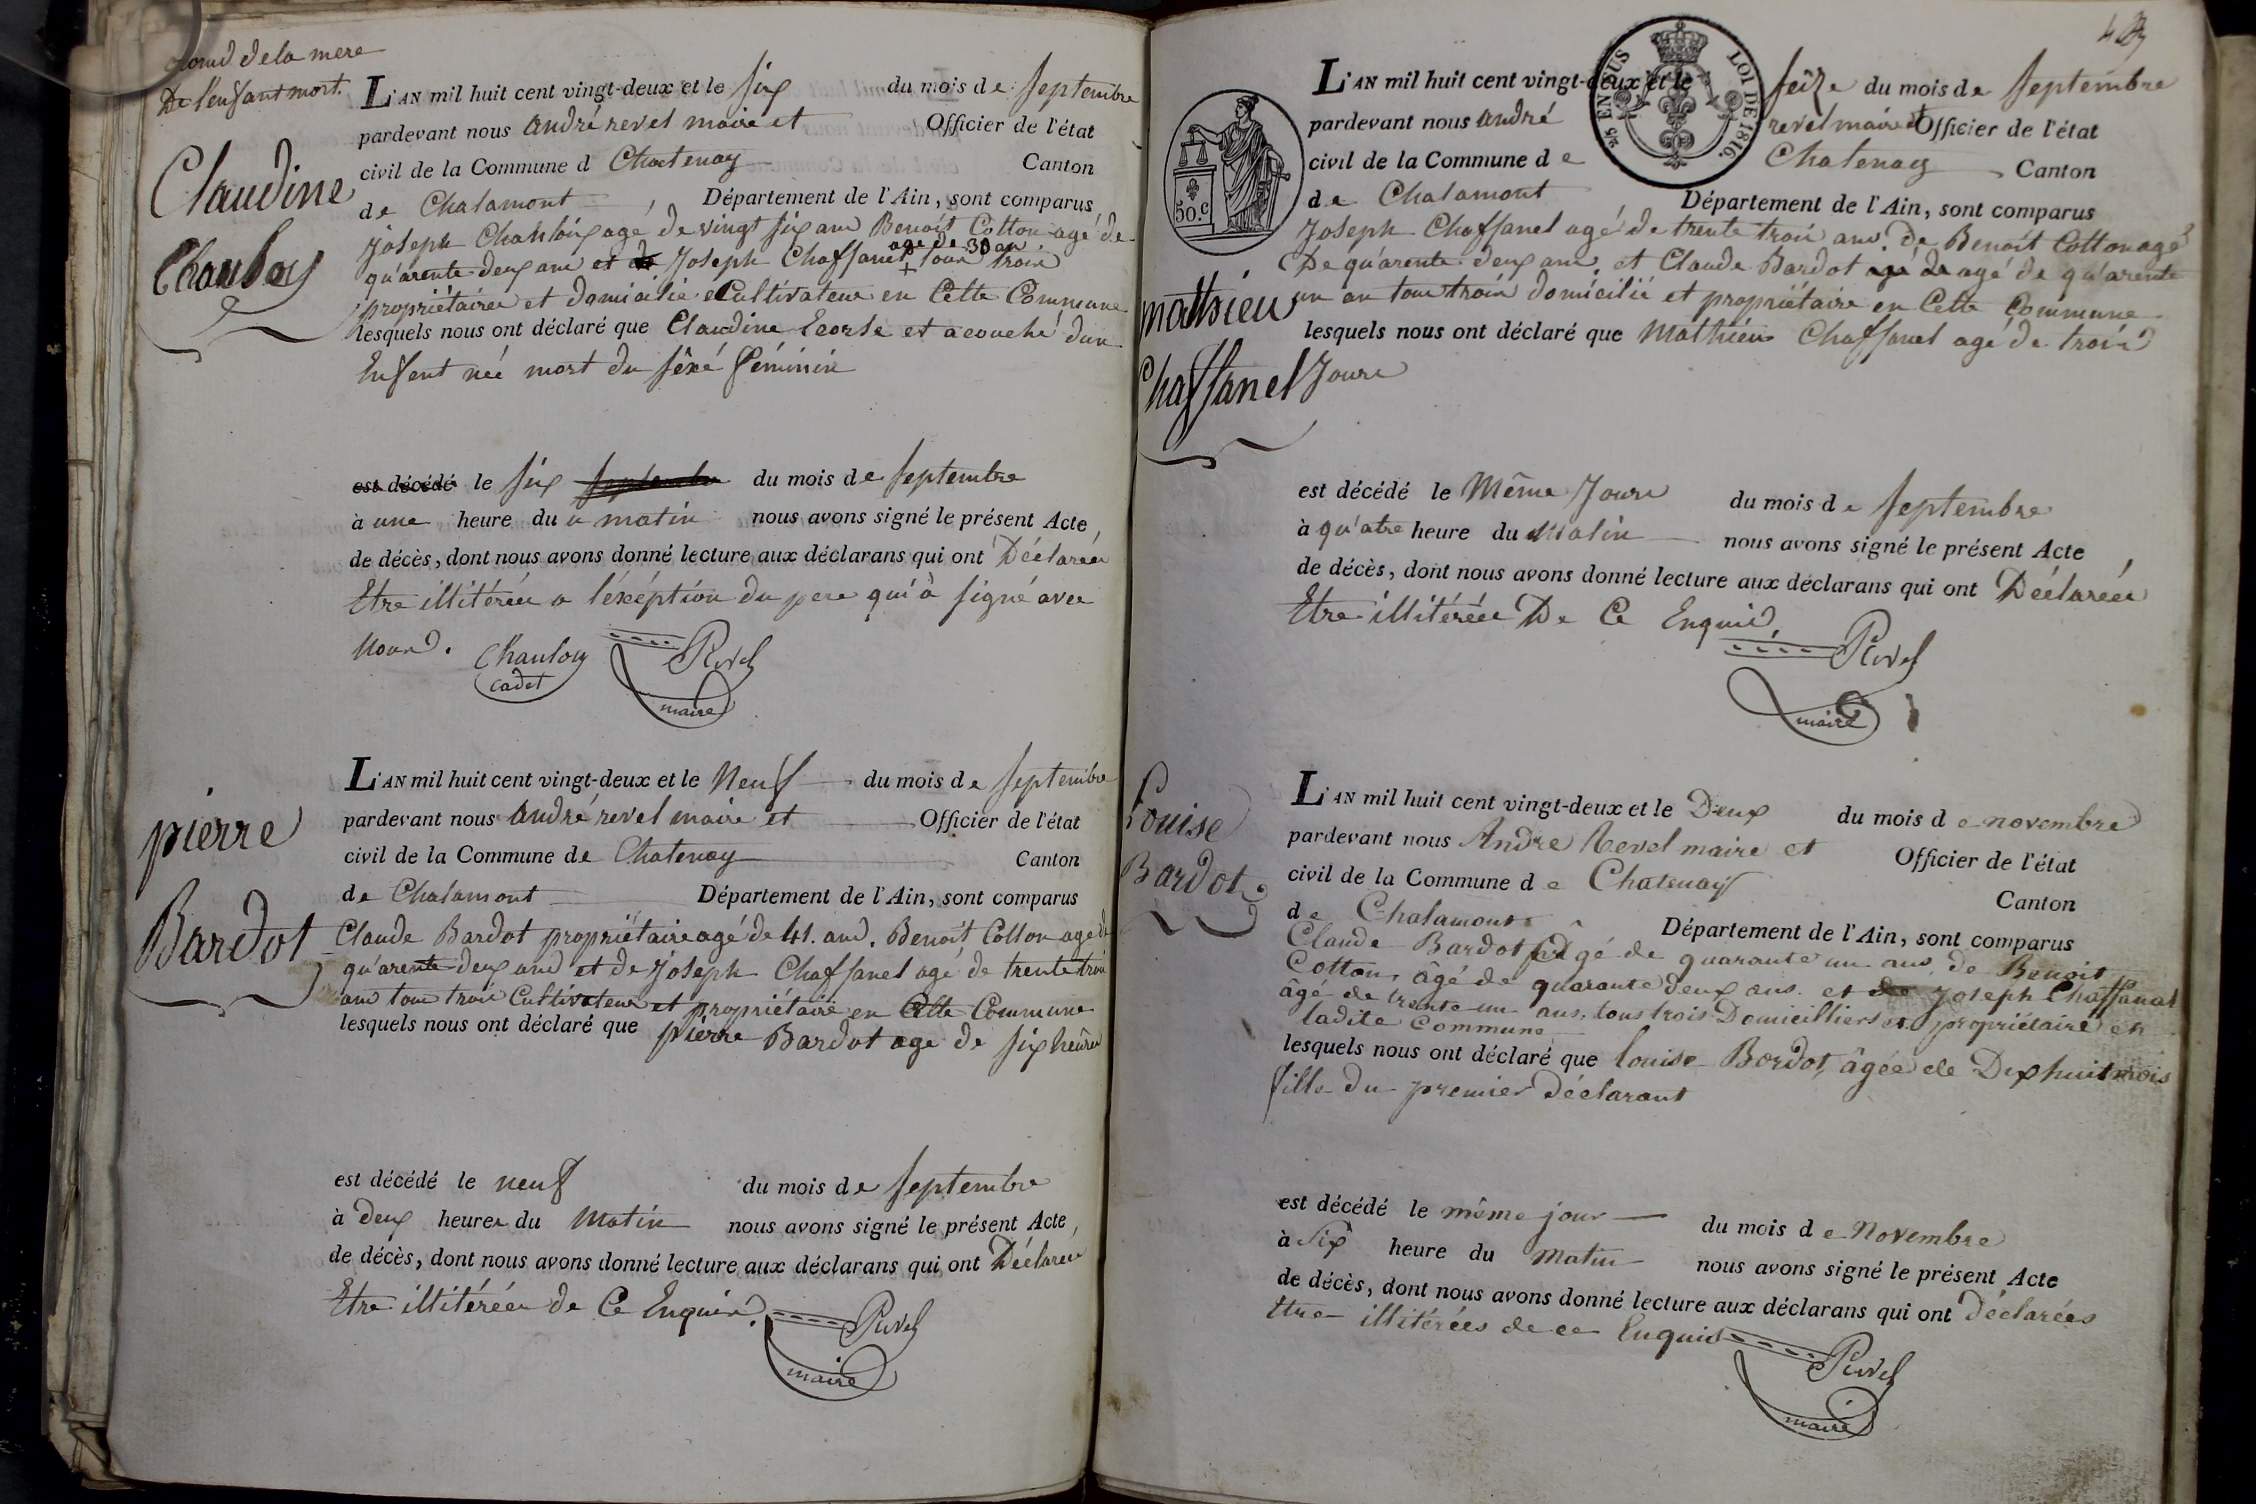 nomd de la mere
De l'enfant mort.
Claudine
Chanloy
L'AN mil huit cent vingt-deux et le six du mois de Septembre
pardevant nous andré revel maire et Officier de l'état
civil de la Commune d Chatenay Canton
de Chalamont, Département de l'Ain, sont comparus
joseph Chanloy agé de vingt six ans Benoit Cotton agé de
age de 30 an
qu'arente deux ans et de Joseph Chaffanel + tous trois
propriétaires et domicilié e Cultivateur en Cette Commune
lesquels nous ont déclaré que Claudine et acouché d'un
Enfent née mort du séxé féminin
est décédé le six septembre du mois de Septembre
à une heure du matin nous avons signé le présent Acte
de décès, dont nous avons donné lecture aux déclarans qui ont Déclarée
Etre illitérée a l'éxéption du pere qui à signé avec
nous. Chanloy Revel
cadet maire
pierre
Bardot
L'AN mil huit cent vingt-deux et le Neuf du mois de Septembre
pardevant nous andré revel maire et Officier de l'état
civil de la Commune de Chatenay Canton
de Chalamont Département de l'Ain, sont comparus
Claude Bardot propriétaire agé de 41. ans. Benoit Cotton agé de
qu'arente deux ans et de joseph Chaffanel agé de trente trois
ans tous trois Cultivateur et propriétaire en Cette Commune
lesquels nous ont déclaré que pierre Bardot age de six heures
est décédé le neuf du mois de Septembre
à deux heures du matin nous avons signé le présent Acte,
de décès, dont nous avons donné lecture aux déclarans qui ont Déclarée
Etre illitérée de Ce Enquis. Revel
maire
LOI DE 1816.
EN SUS
50.C
L'AN mil huit cent vingt-deux et le seize du mois de Septembre
pardevant nous andré revel maire et Officier de l'état
civil de la Commune de Chatenay Canton
de Chalamont Département de l'Ain, sont comparus
Joseph Chaffanel agé de trente trois ans. de Benoit Cotton agé
De qu'arente deux ans. et Claude Bardot agé de agé de qu'arente
un an tous trois domicilié et propriétaire en Cette Commune
matthieu
Chaffanel
lesquels nous ont déclaré que Mathieu Chaffanel agé de trois
Jours
est décédé le Même Jours du mois de Septembre
à qu'atre heure du Matin nous avons signé le présent Acte
de décès, dont nous avons donné lecture aux déclarans qui ont Déclarée
Etre illitérée De Ce Enquis, Revel
maire
Louise
Bardot
L'AN mil huit cent vingt-deux et le Deux du mois de novembre
pardevant nous Andre Revel maire et Officier de l'état
civil de la Commune de Chatenay Canton
de Chalamont Département de l'Ain, sont comparus
Claude Bardot agé de quarante un ans, de Benoit
Cotton, âgé de quarante deux ans. et de Joseph Chaffanal
âgé de trente un ans, tous trois Domicilliers et propriétaire en
ladite Commune
lesquels nous ont déclaré que louise Bordot, âgée de Dix huit mois
fille du premier déclarant
est décédé le même jour du mois de Novembre
à Six heure du matin nous avons signé le présent Acte
de décès, dont nous avons donné lecture aux déclarans qui ont Déclarées
Etre illitérées de ce Enquis Revel
maire